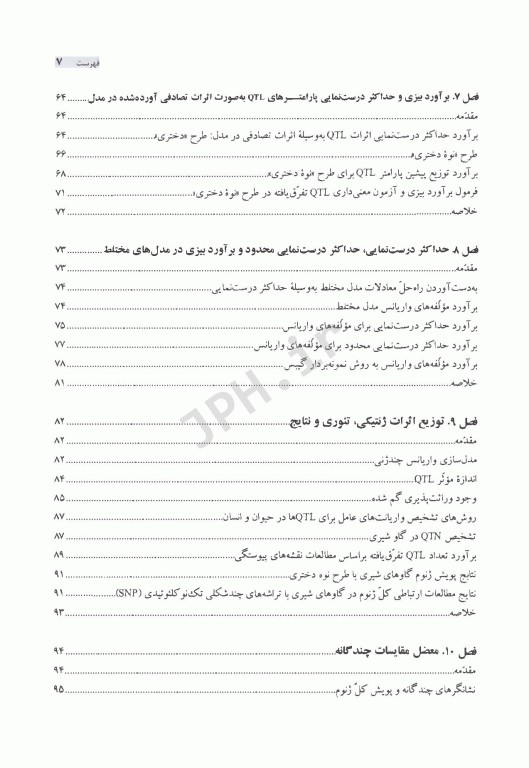 فهرست ۷
فصل ۷. برآورد بیزی و حداکثر درست‌نمایی پارامترهای QTL به‌صورت اثرات تصادفی آورده‌شده در مدل ........ ۶۴
مقدّمه........ ۶۴
برآورد حداکثر درست‌نمایی اثرات QTL به‌وسیلهٔ اثرات تصادفی در مدل: طرح «دختری»........ ۶۴
طرح «نوهٔ دختری»........ ۶۶
برآورد توزیع پیشین پارامتر QTL برای طرح «نوهٔ دختری»........ ۶۸
فرمول برآورد بیزی و آزمون معنی‌داری QTL تفرّق‌یافته در طرح «نوهٔ دختری»........ ۷۱
خلاصه........ ۷۲
فصل ۸. حداکثر درست‌نمایی، حداکثر درست‌نمایی محدود و برآورد بیزی در مدل‌های مختلط ........ ۷۳
مقدّمه........ ۷۳
به‌دست‌آوردن راه‌حلّ معادلات مدل مختلط به‌وسیلهٔ حداکثر درست‌نمایی........ ۷۴
برآورد مؤلّفه‌های واریانس مدل مختلط ........ ۷۴
برآورد حداکثر درست‌نمایی برای مؤلّفه‌های واریانس........ ۷۵
برآورد حداکثر درست‌نمایی محدود برای مؤلّفه‌های واریانس........ ۷۷
برآورد مؤلّفه‌های واریانس به روش نمونه‌بردار گیبس........ ۷۸
خلاصه........ ۸۱
فصل ۹. توزیع اثرات ژنتیکی، تئوری و نتایج ........ ۸۲
مقدّمه........ ۸۲
مدل‌سازی واریانس چندژنی........ ۸۲
اندازهٔ مؤثّر QTL........ ۸۴
وجود وراثت‌پذیری گم شده ........ ۸۵
روش‌های تشخیص واریانت‌های عامل برای QTLها در حیوان و انسان........ ۸۷
تشخیص QTN در گاو شیری ........ ۸۷
برآورد تعداد QTL تفرّق‌یافته براساس مطالعات نقشه‌های پیوستگی........ ۸۹
نتایج پویش ژنوم گاوهای شیری با طرح نوه دختری........ ۹۱
نتایج مطالعات ارتباطی کلّ ژنوم در گاوهای شیری با تراشه‌های چندشکلی تک‌نوکلئوتیدی (SNP)........ ۹۱
خلاصه........ ۹۳
فصل ۱۰. معضل مقایسات چندگانه........ ۹۴
مقدّمه........ ۹۴
نشانگرهای چندگانه و پویش کلّ ژنوم........ ۹۵
JPH.ir